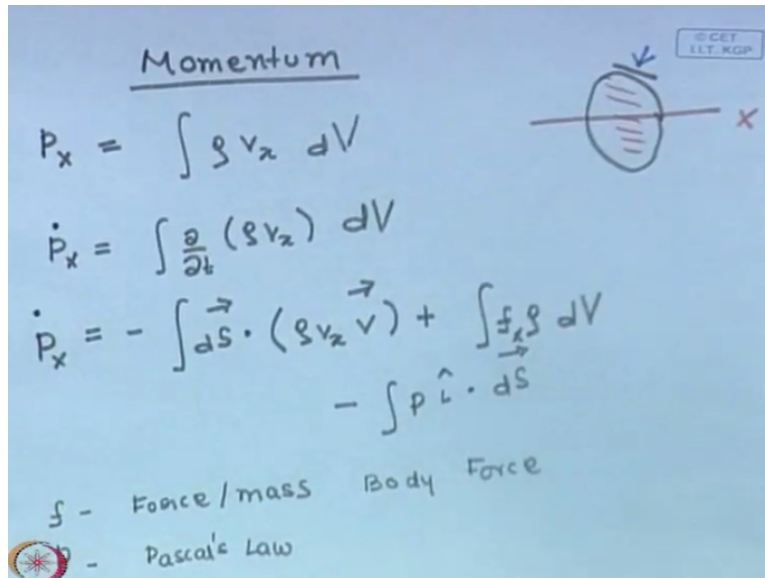 © CET
I.I.T. KGP
Momentum
x
Pₓ = ∫ ρ vₓ dV
Ṗₓ = ∫ ∂/∂t (ρvₓ) dV
Ṗₓ = - ∫ d⃗S · (ρvₓ v⃗) + ∫ fₓ ρ dV
- ∫ p î · d⃗S
f - Force/mass Body Force
- Pascal's Law